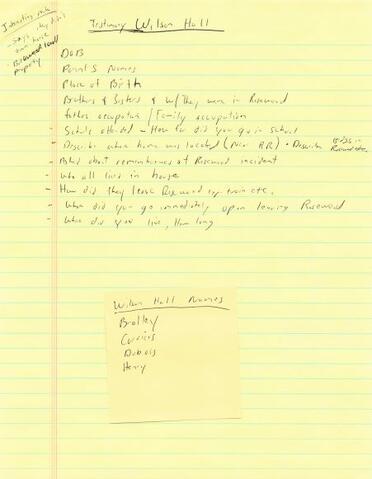 Interesting note
- says they didn't
own house
- Rosewood land
property
Testimony Wilson Hall
DOB
Parent's Names
Place of Birth
Brothers & Sisters & w/They were in Rosewood
Father occupation / Family occupation
- Schools attended - How far did you go in school
- Describe where home was located (Near RR) • Describe
- Asked about remembrances of Rosewood incident
- who all lived in house
- How did they leave Rosewood e.g. train etc.
- Where did you go immediately upon leaving Rosewood
- Where did you live, How long
Wilson Hall Names
Bradley
Carriers
Dubois
Henry